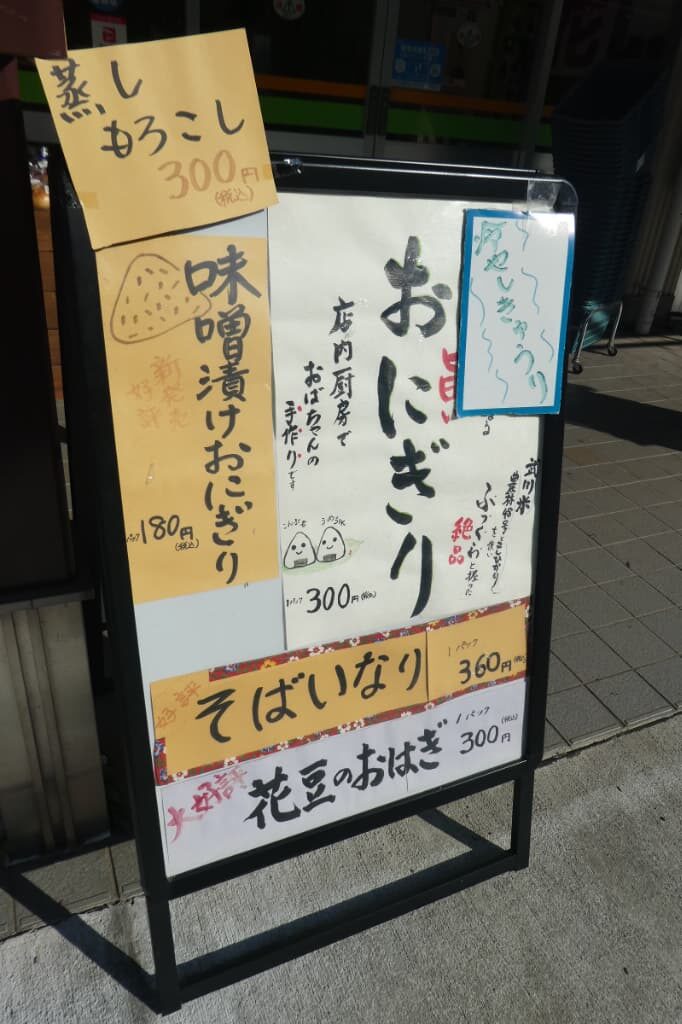 蒸し
もろこし
300円
(税込)
味噌漬けおにぎり
新発売
好評
1パック180円
(税込)
冷やしきゅうり
おにぎり
武川米
農林48号
ふっくらと握った
絶品
店内厨房で
おばちゃんの
手作りです
こんぶ
うめ
1パック300円(税込)
好評
そばいなり
1パック
360円(税込)
大好評
花豆のおはぎ
1パック
(税込)
300円